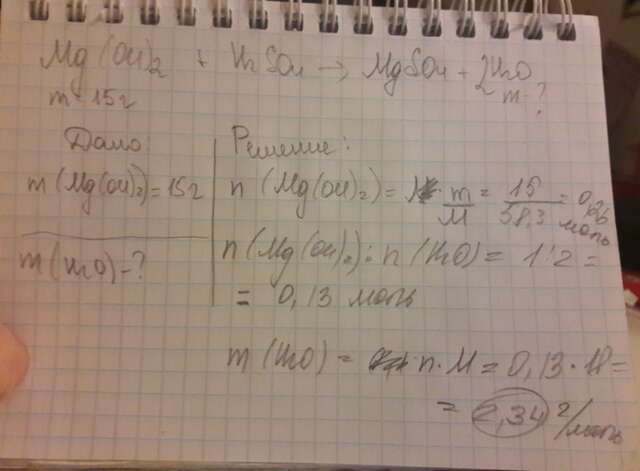 Mg(OH)2 + H2SO4 → MgSO4 + 2H2O
m-15г m-?
Дано:
m(Mg(OH)2)=15г
m(H2O)-?
Решение:
n(Mg(OH)2)= m/M = 15/58,3 = 0,26 моль
n(Mg(OH)2):n(H2O)= 1:2 =
= 0,13 моль
m(H2O) = n·M = 0,13·18=
= 2,34 г/моль